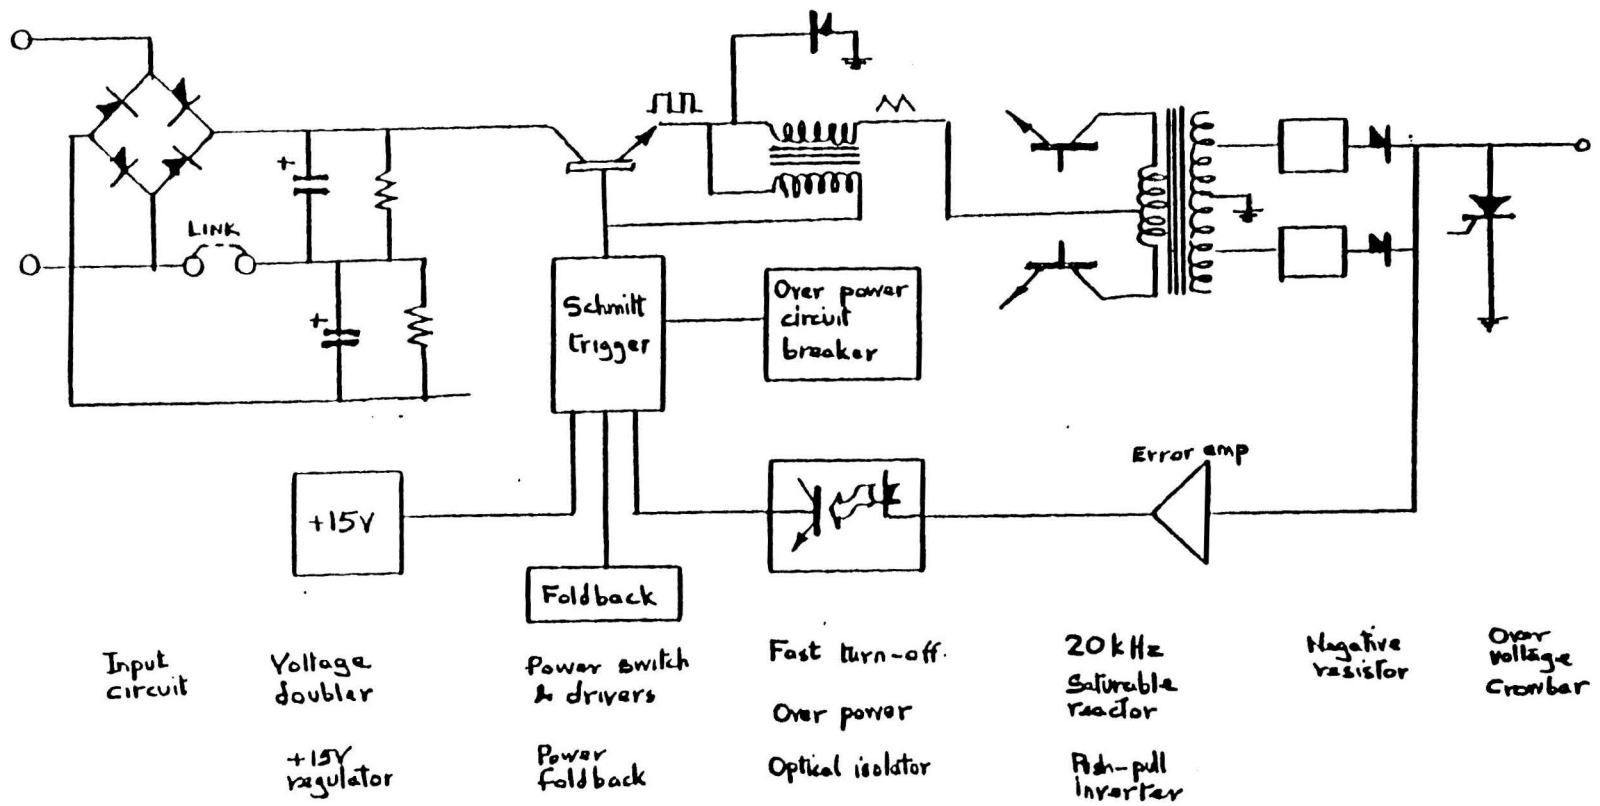 LINK
Schmitt
trigger
Over power
circuit
breaker
Error amp
+15V
Foldback
Input
circuit
Voltage
doubler
+15V
regulator
Power switch
& drivers
Power
foldback
Fast turn-off.
Over power
Optical isolator
20kHz
Saturable
reactor
Push-pull
inverter
Negative
resistor
Over
voltage
Crowbar